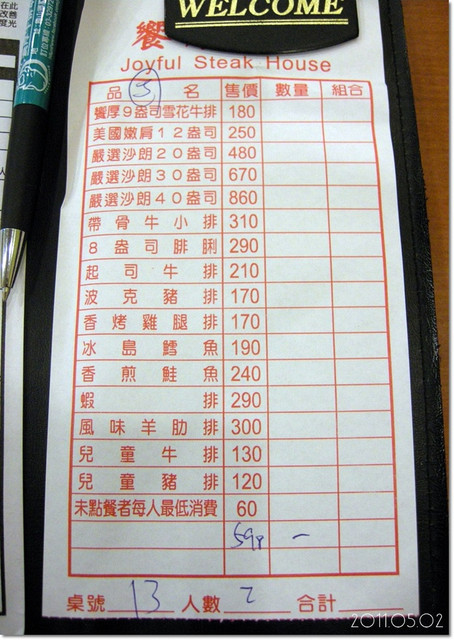 WELCOME
饗
Joyful Steak House
品 5 名 售價 數量 組合
饗厚9盎司雪花牛排 180
美國嫩肩12盎司 250
嚴選沙朗20盎司 480
嚴選沙朗30盎司 670
嚴選沙朗40盎司 860
帶骨牛小排 310
8盎司腓脷 290
起司牛排 210
波克豬排 170
香烤雞腿排 170
冰島鱈魚 190
香煎鮭魚 240
蝦排 290
風味羊肋排 300
兒童牛排 130
兒童豬排 120
未點餐者每人最低消費 60
桌號 13 人數 2 合計
2011.05.02